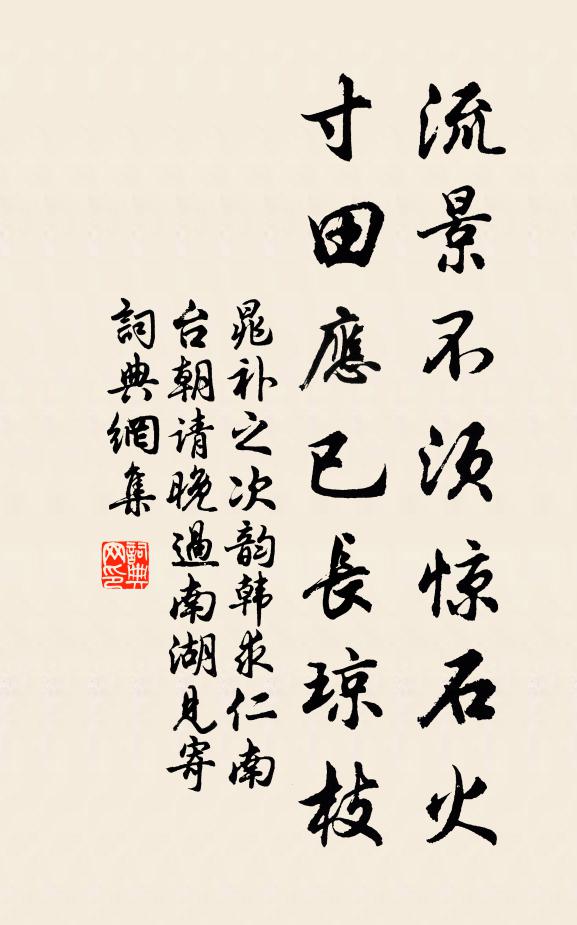 流景不须惊石火
寸田應已長琼枝
晁补之次韵韩求仁南
台朝请晚過南湖見寄
詞典網集
詞典
网印